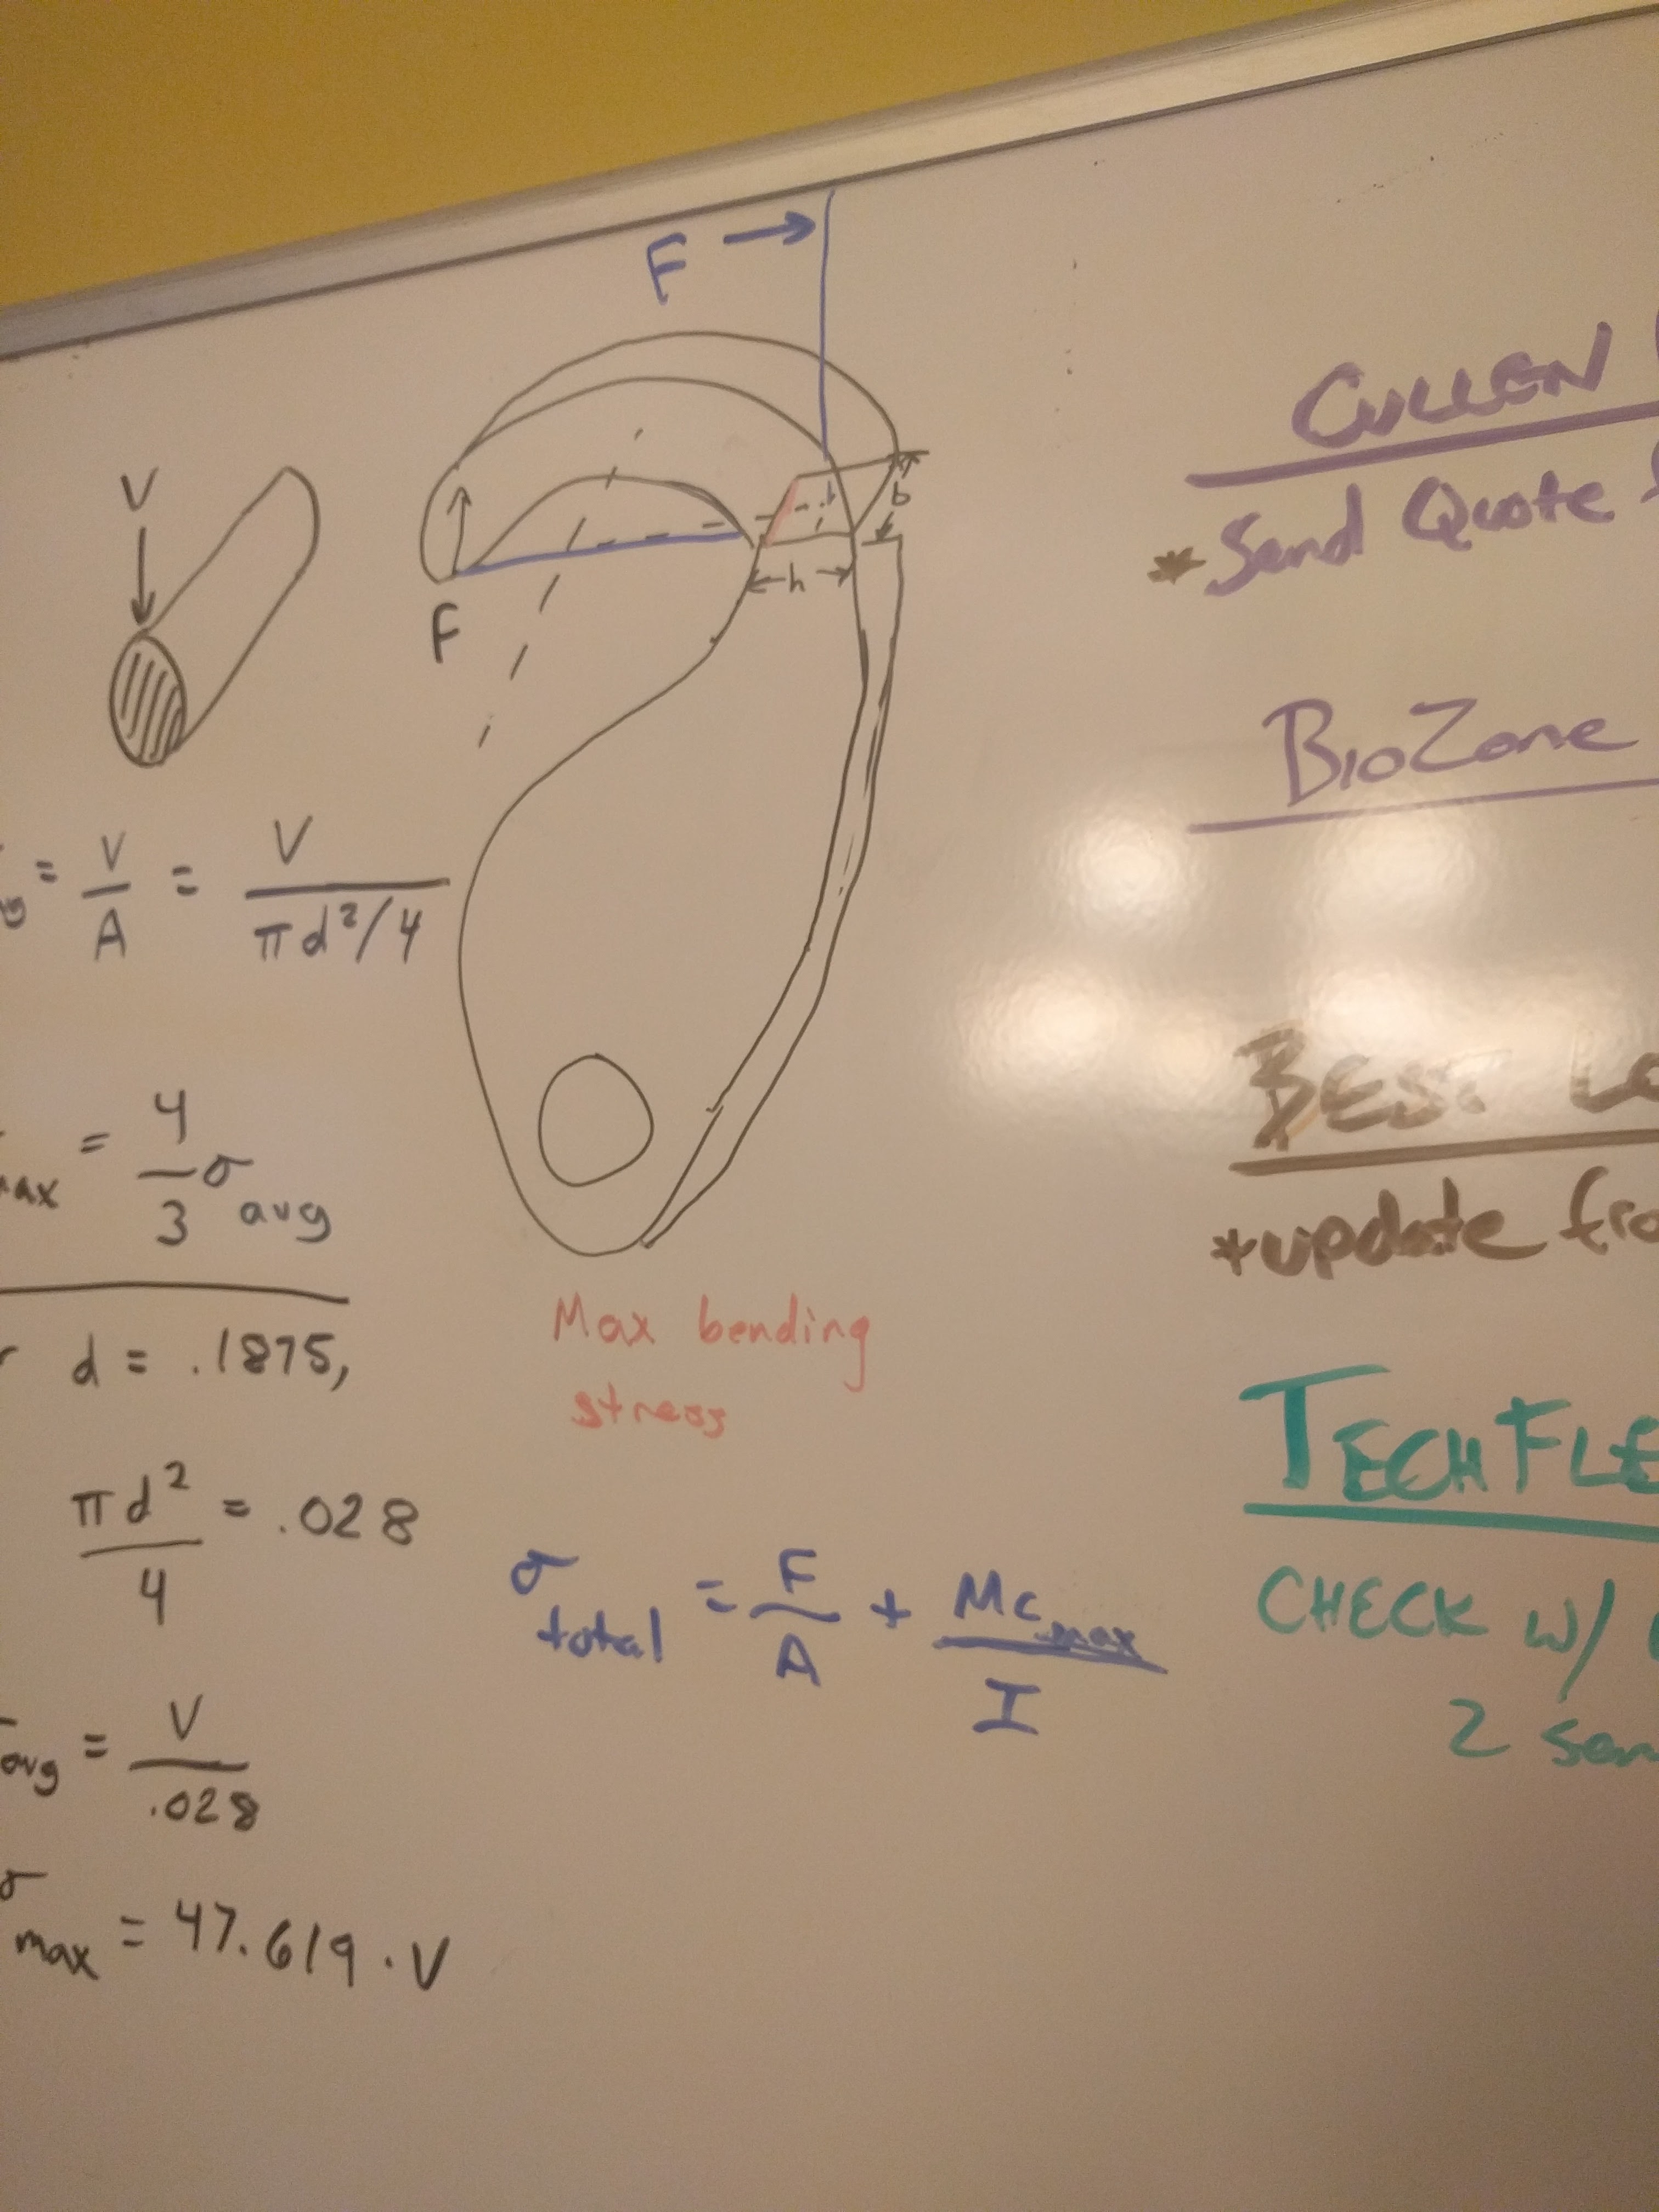 F →
V
F
b
h
= V/A = V/(πd²/4)
= 4/3 σ avg
d = .1875,
πd²/4 = .028
avg = V/.028
σ max = 47.619 · V
Max bending
stress
σ total = F/A + Mc max/I
CULLEN
* Send Quote
BioZone
BEST
* update
TECHFLE
CHECK w/
2